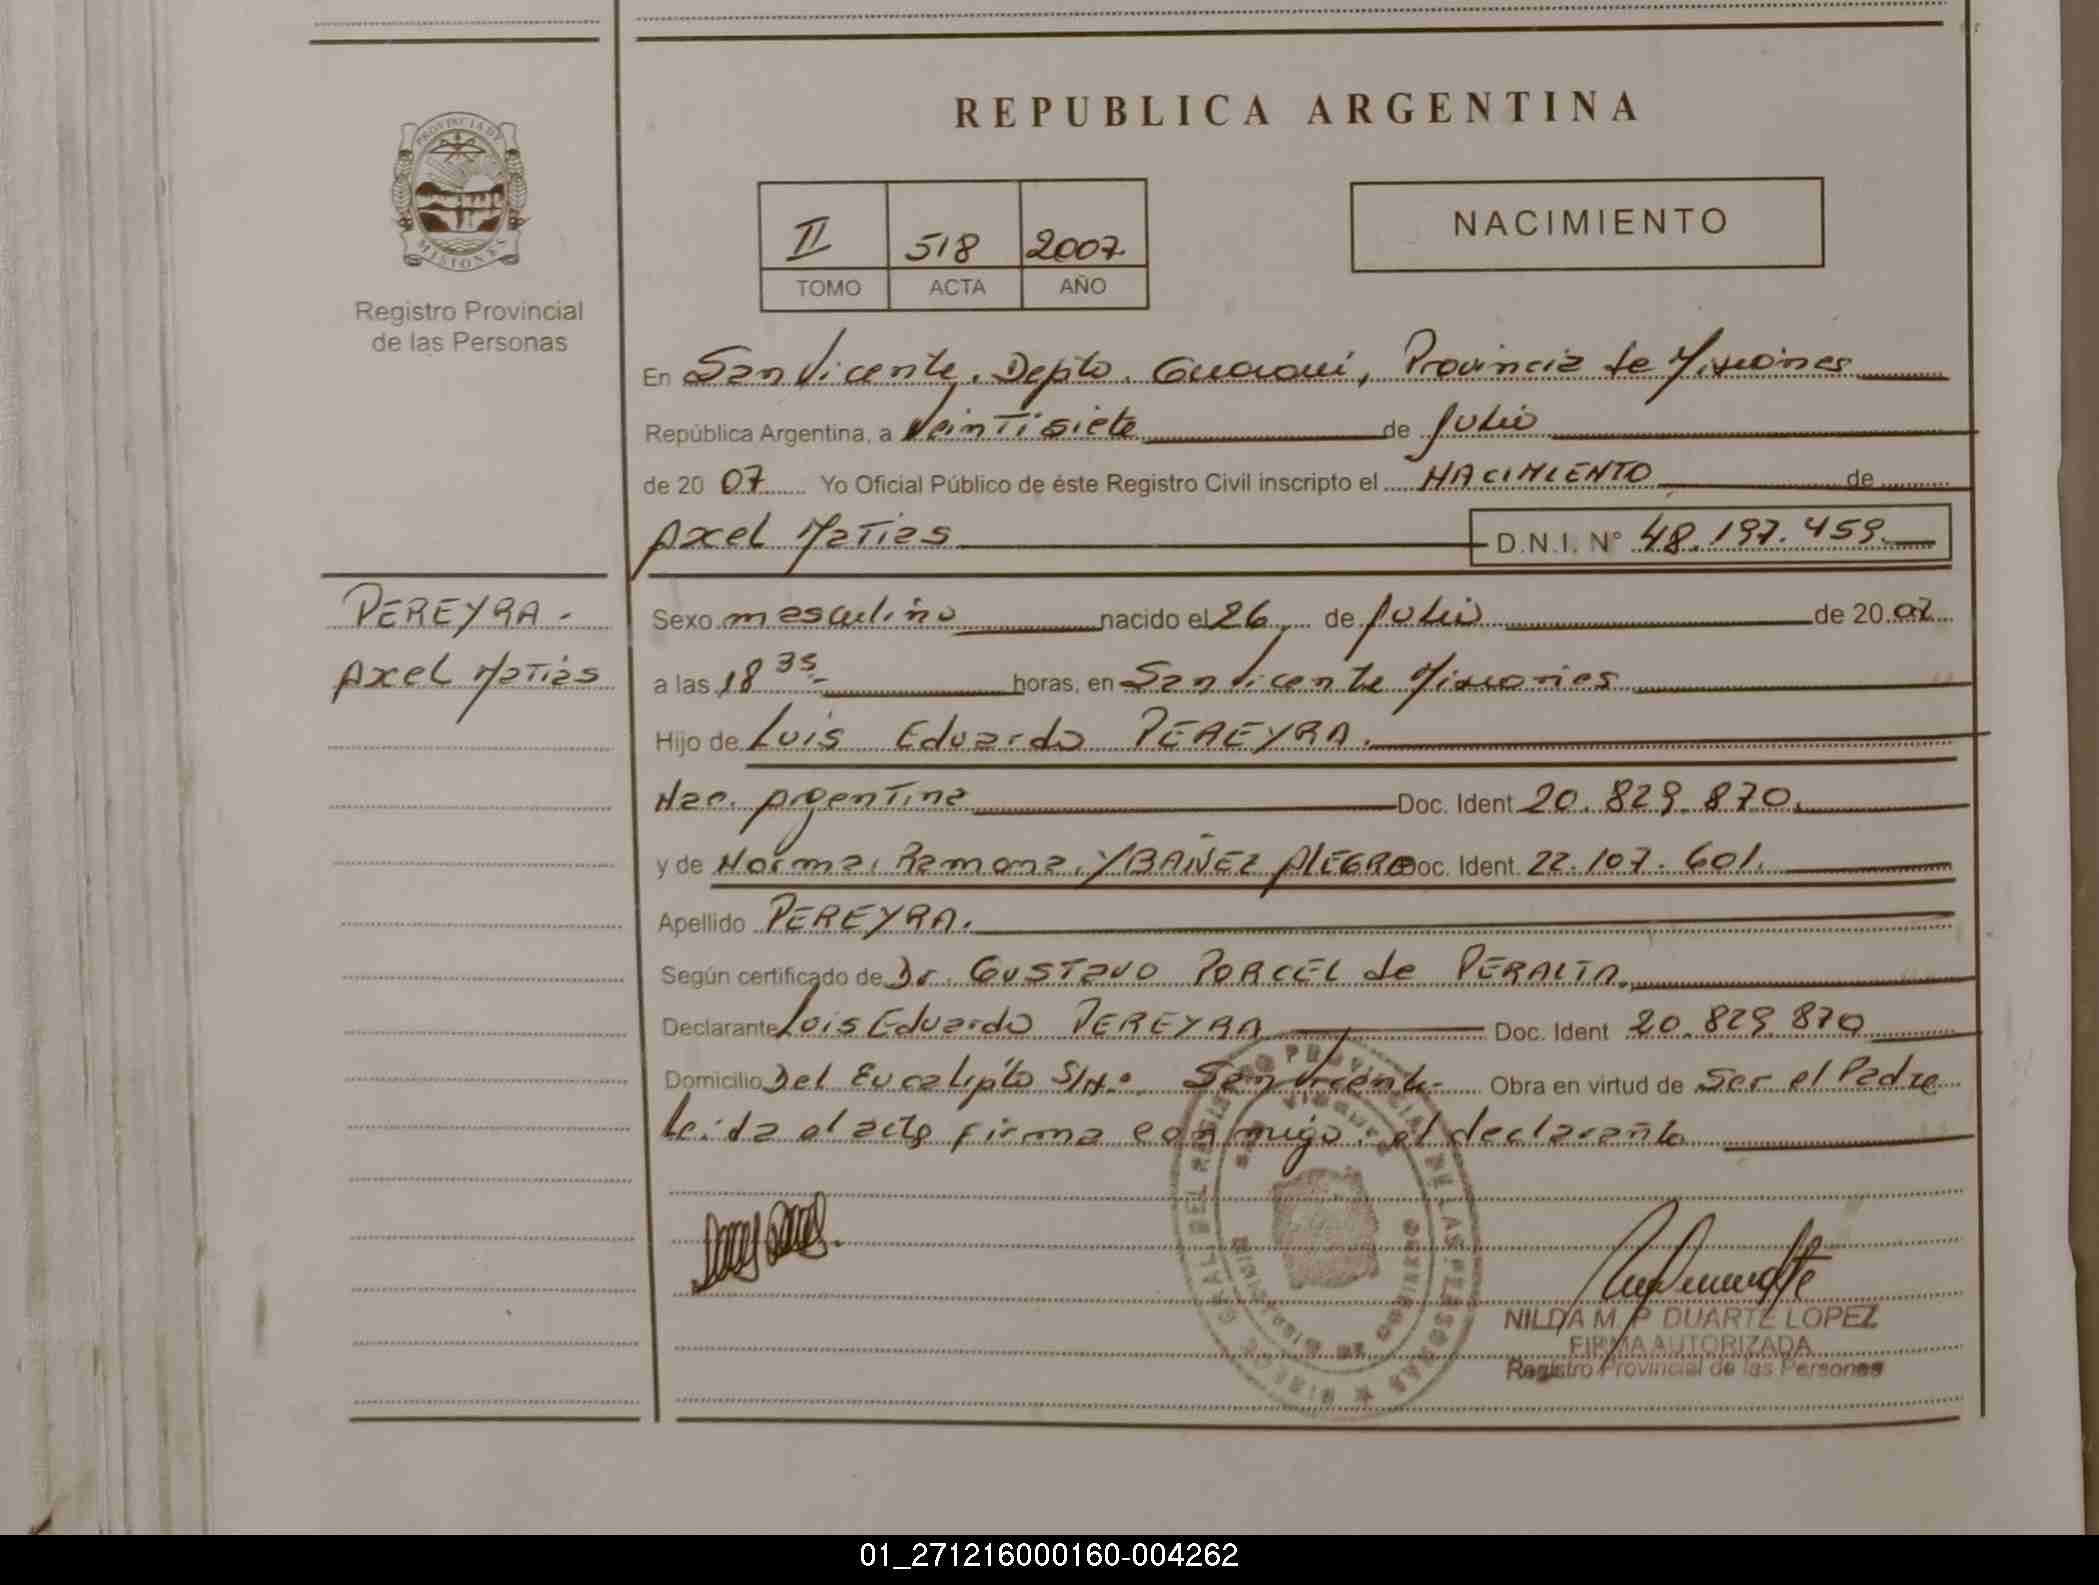 REPUBLICA ARGENTINA
PROVINCIA DE
MISIONES
Registro Provincial
de las Personas
II 518 2007
TOMO ACTA AÑO
NACIMIENTO
En San Vicente, Depto. Guaraní, Provincia de Misiones
República Argentina, a Veintisiete de Julio
de 20 07 Yo Oficial Público de éste Registro Civil inscripto el NACIMIENTO de
Axel Matias D.N.I. N° 48.197.459.
PEREYRA.
Axel Matias
Sexo masculino nacido el 26 de Julio de 20 07
a las 18 35 horas, en San Vicente Misiones
Hijo de Luis Eduardo PEREYRA.
Nac. Argentina Doc. Ident 20.829.870.
y de Norma Ramona YBAÑEZ ALEGRE Doc. Ident. 22.107.601.
Apellido PEREYRA.
Según certificado de Dr. Gustavo PORCEL de PERALTA.
Declarante Luis Eduardo PEREYRA Doc. Ident 20.829.870
Domicilio Del Eucalipto S/N° San Vicente Obra en virtud de Ser el Padre
Leída el acta firma conmigo el declarante
NILDA M. P. DUARTE LOPEZ
FIRMA AUTORIZADA
Registro Provincial de las Personas
01_271216000160-004262